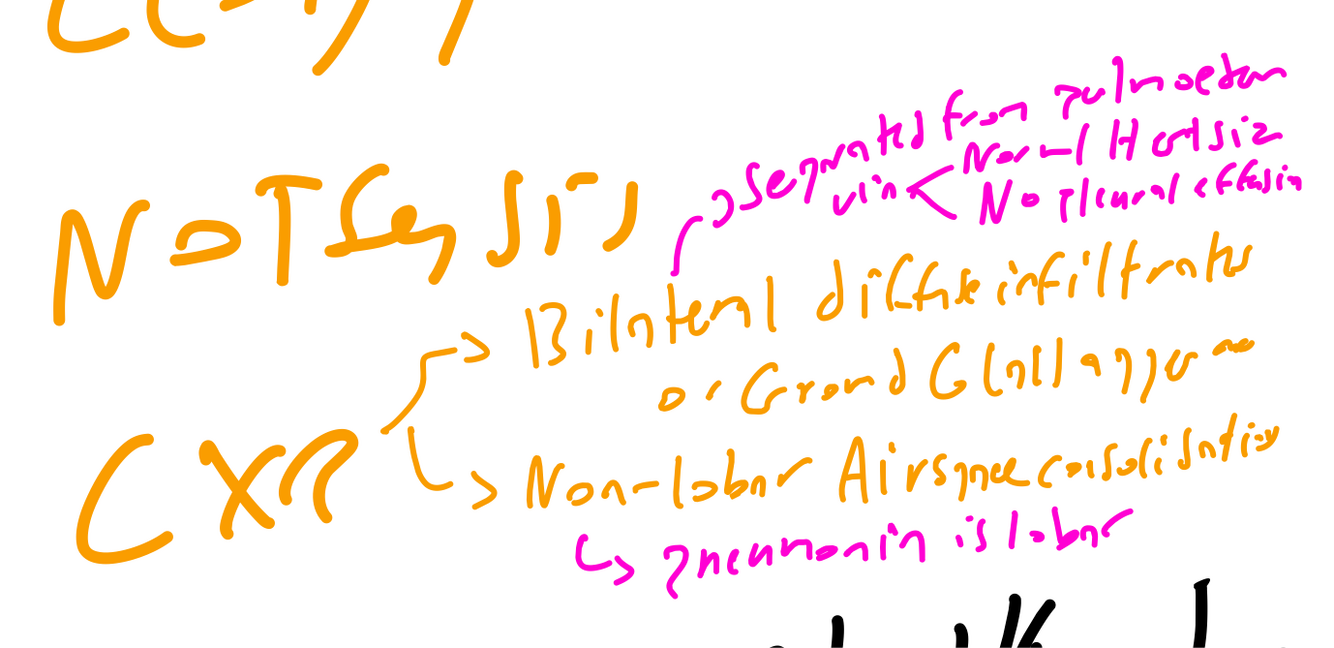 Not Sepsis
Separated from pulm oedem
via Normal Heart size
No pleural effusion
CXR
Bilateral diffuse infiltrates
or Ground Glass appear
Non-lobar Airspace consolidation
pneumonia is lobar